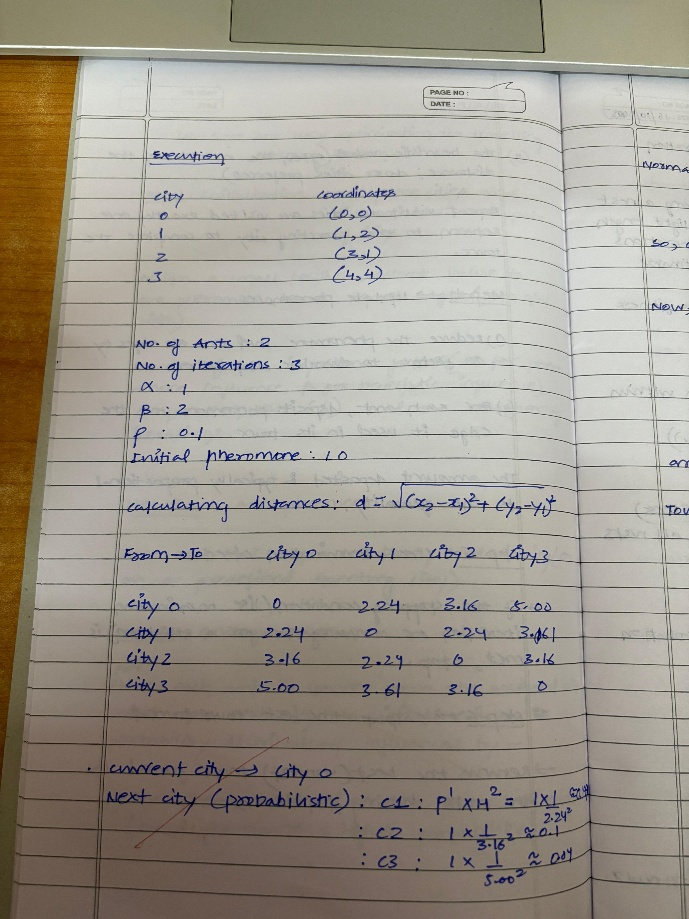 PAGE NO :
DATE :
Execution
city coordinates
0 (0,0)
1 (1,2)
2 (3,1)
3 (4,4)
No. of Ants : 2
No. of iterations : 3
α : 1
β : 2
ρ : 0.1
Initial pheromone : 1.0
calculating distances: d = √(x₂-x₁)² + (y₂-y₁)²
From → To city 0 city 1 city 2 city 3
city 0 0 2.24 3.16 5.00
city 1 2.24 0 2.24 3.61
city 2 3.16 2.24 0 3.16
city 3 5.00 3.61 3.16 0
current city → city 0
Next city (probabilistic) : C1 : P¹ × H² = 1×1/2.24²
: C2 : 1 × 1/3.16² ≈ 0.1
: C3 : 1 × 1/5.00² ≈ 0.04
Norma
so,
NOW,
an
Tou